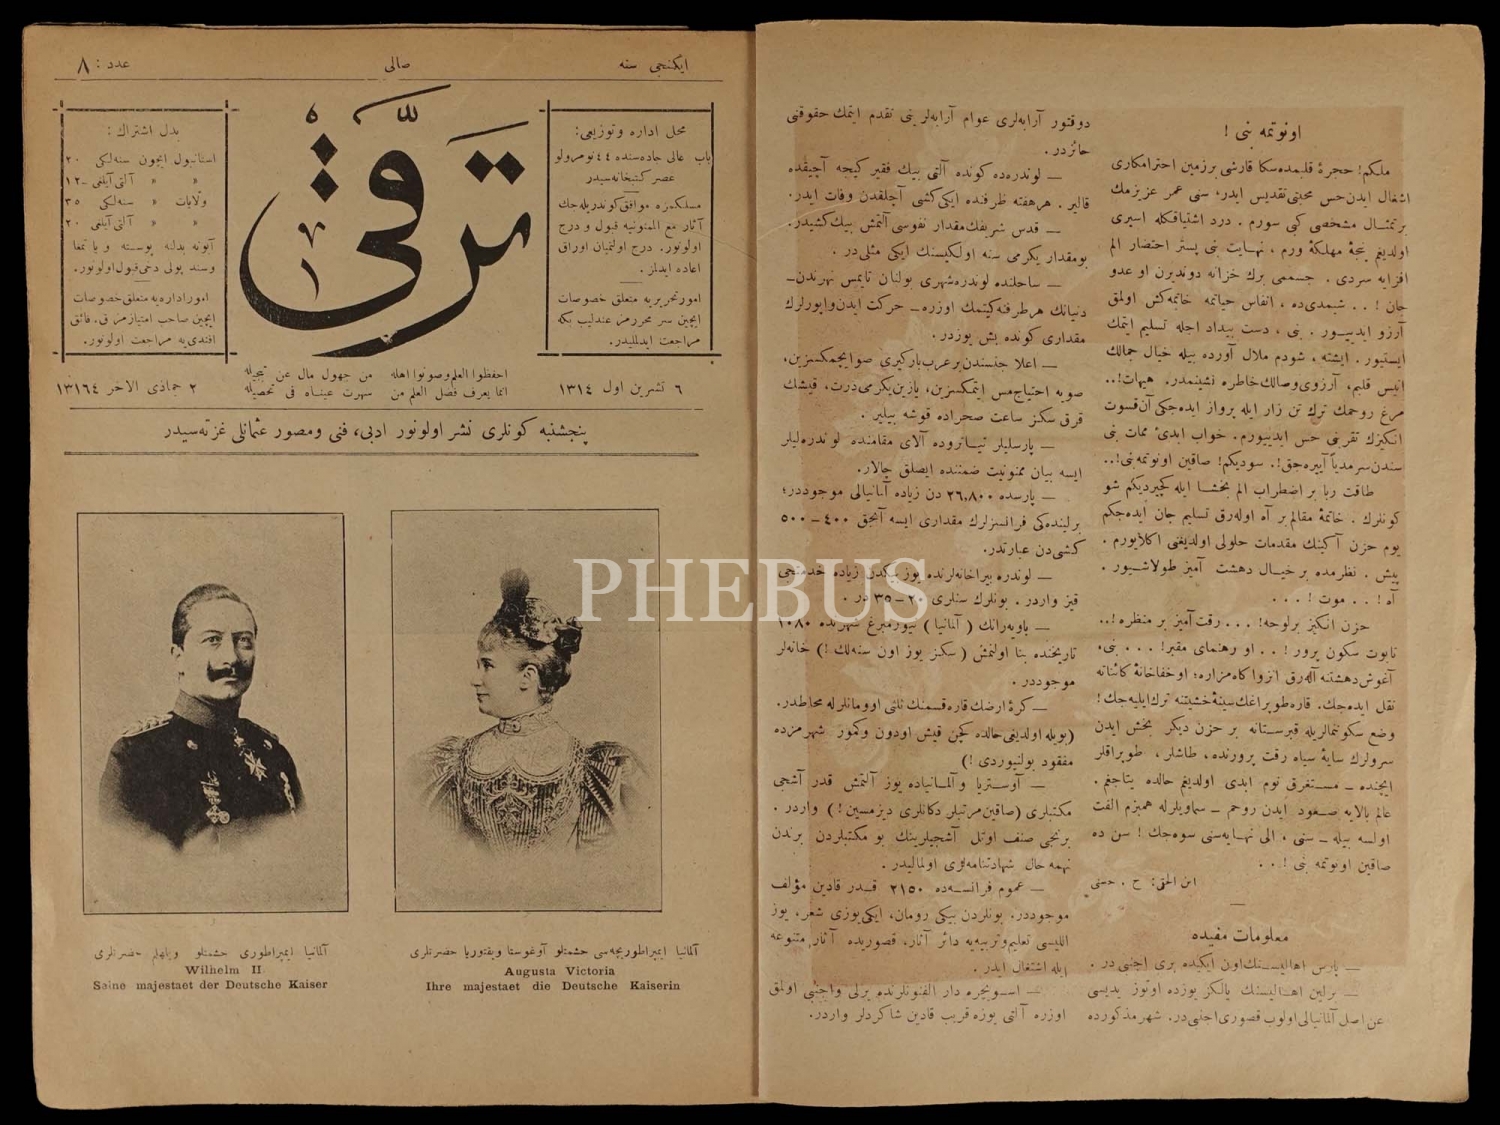 ایكنجی سنه
صالی
عدد : ٨
محل اداره و توزیعی :
باب عالی جاده‌سنده ٤٤ نومرولو
عصر كتبخانه‌سیدر
مسلكمزه موافق كوندریله‌جك
آثار مع الممنونیه قبول و درج
اولونور. درج اولنمیان اوراق
اعاده ایدلمز .
امور تحریریه متعلق خصوصات
ایچین سر محررمز عندلیب بكه
مراجعت ایدلملیدر.
ترقی
بدل اشتراك :
استانبول ایچون سنه‌لكی ٢٠
» » آلتی آیلغی ١٢
ولایات » سنه‌لكی ٣٥
» » آلتی آیلغی ٢٠
آبونه بدلنه پوسته و یا تمغا
وسند پولی دخی قبول اولونور.
امور اداره‌یه متعلق خصوصات
ایچین صاحب امتیازمز ق. فائق
افندی‌یه مراجعت اولونور.
٦ تشرین اول ١٣١٤
احفظوا العلم وصونوا اهله
من جهول مال عن تبجیله
انما یعرف فضل العلم من
سهرت عیناه فی تحصیله
٢ جماذی الاخر ١٣١٦٤
پنجشنبه كونلری نشر اولونور ادبی، فنی و مصور عثمانلی غزته‌سیدر
آلمانیا ایمپراطوری حشمتلو ویلهلم حضرتلری
Wilhelm II.
Seine majestaet der Deutsche Kaiser
آلمانیا ایمپراطوریچه‌سی حشمتلو آوغوستا ویقتوریا حضرتلری
Augusta Victoria
Ihre majestaet die Deutsche Kaiserin
اونوتمه بنی !
ملكم! حجرهٔ قلبمده سكا قارشی برزمین احترامكاری
اشغال ایدن حس محبتی تقدیس ایدر، سنی عمر عزیزمك
بر تمثال مشخصی كبی سورم . درد اشتیاقكله اسیری
اولدیغم پنجهٔ مهلكهٔ ورم ، نهایت بنی پستر احتضار الم
افزایه سردی . جسممی برك خزانه دوندیرن او عدو
جان ! . . شیمدی‌ده ، انفاس حیاتمه خاتمه‌كش اولمق
آرزو ایدییور . بنی ، دست بیداد اجله تسلیم ایتمك
ایستیور . ایشته ، شودم ملال آورده بیله خیال جمالك
انیس قلبم، آرزوی وصالك خاطره نشینمدر. هیهات!..
مرغ روحمك ترك تن زار ایله پرواز ایده‌جكی آن قسوت
انكیزك تقربنی حس ایدییورم. خواب ابدیٔ ممات بنی
سندن سرمدیاً آییره‌جق!. سودیكم! صاقین اونوتمه بنی!..
طاقت ربا بر اضطراب الم بخشا ایله كچیردیكم شو
كونلرك . خاتمهٔ مقالم بر آه اوله‌رق تسلیم جان ایده‌جكم
یوم حزن آكینك مقدمات حلولی اولدیغنی اكلایورم .
پیش . نظرمده بر خیال دهشت آمیز طولاشیور .
آه ! . . موت ! . . .
حزن انكیز بر لوحه! . . . رقت آمیز بر منظره !..
تابوت سكون پرور ! . . او رهنمای مقبر! . . . بنی،
آغوش دهشتنه آله‌رق انزوا كاه مزاره؛ او خفاخانهٔ كائناته
نقل ایده‌جك. قاره طوپراغك سینهٔ خشیتنه ترك ایلیه‌جك!
وضع سكوتنمالریله قبرستانه بر حزن دیكر بخش ایدن
سرولرك سایهٔ سیاه رقت پرورنده ، طاشلر ، طوپراقلر
ایچنده ـ مستغرق نوم ابدی اولدیغم حالده یتاجغم .
عالم بالایه صعود ایدن روحم ـ سماویلرله همبزم الفت
اولسه بیله ـ سنی ، الی نهایه سنی سوه‌جك ! سن ده
صاقین اونوتمه بنی ! . .
ابن الحقی: ح . حسنی
معلومات مفیده
ـ پارس اهالیسنك اون ایكیده بری اجنبی در .
ـ برلین اهالیسنك یالكز یوزده اوتوز یدیسی
عن اصل آلمانیالی اولوب قصوری اجنبی در. شهر مذكورده
دوقتور آرابه‌لری عوام آرابه‌لرینی تقدم ایتمك حقوقنی
حائزدر .
ـ لوندره‌ده كونده آلتی بیك فقیر كیجه آچیقده
قالیر . هر هفته ظرفنده ایكی كشی آچلقدن وفات ایدر.
ـ قدس شریفك مقدار نفوسی آلتمش بیك كشیدر.
بو مقدار یكرمی سنه اولكیسنك ایكی مثلی در .
ـ ساحلنده لوندره شهری بولنان تایمس نهرندن ـ
دنیانك هر طرفنه كیتمك اوزره ـ حركت ایدن واپورلرك
مقداری كونده بش یوزدر .
ـ اعلا جنسندن بر عرب باركیری صو ایچمكسزین،
صویه احتیاج مس ایتمكسزین، یازین یكرمی درت، قیشك
قرق سكز ساعت صحراده قوشه بیلیر .
ـ پارسلیلر تیاتروده آلای مقامنده لوندره‌لیلر
ایسه بیان ممنونیت ضمننده ایصلق چالار.
ـ پارسده ٢٦,٨٠٠ دن زیاده آلمانیالی موجوددر؛
برلینده‌كی فرانسزلرك مقداری ایسه آنجق ٤٠٠ ـ ٥٠٠
كشی‌دن عبارتدر.
ـ لوندره بیراخانه‌لرنده یوز بیكدن زیاده خدمتجی
قیز واردر . بونلرك سنلری ٢٠ ـ ٣٥ در .
ـ باویه‌رانك ( آلمانیا ) نیورمبرغ شهرنده ١٠٨٠
تاریخنده بنا اولنمش ( سكز یوز اون سنه‌لك !) خانه‌لر
موجوددر .
ـ كرهٔ ارضك قاره قسمنك ثلثی اورمانلرله محاطدر.
(بویله اولدیغی حالده كچن قیش اودون و كمور شهرمزده
مفقود بولنیوردی !)
ـ آوستریا و آلمانیاده یوز آلتمش قدر آشجی
مكتبلری (صاقین مرتبلر دكانلری دیزمسین !) واردر .
برنجی صنف اوتل آشجیلرینك بو مكتبلردن برندن
بهمه حال شهادتنامه‌لری اولمالیدر .
ـ عموم فرانسه‌ده ٢١٥٠ قدر قادین مؤلف
موجوددر. بونلردن بیكی رومان، ایكی یوزی شعر، یوز
اللیسی تعلیم و تربیه‌یه دائر آثار، قصوریده آثار متنوعه
ایله اشتغال ایدر .
ـ اسویچره دار الفنونلرنده یرلی و اجنبی اولمق
اوزره آلتی یوزه قریب قادین شاكردلر واردر.
PHEBUS